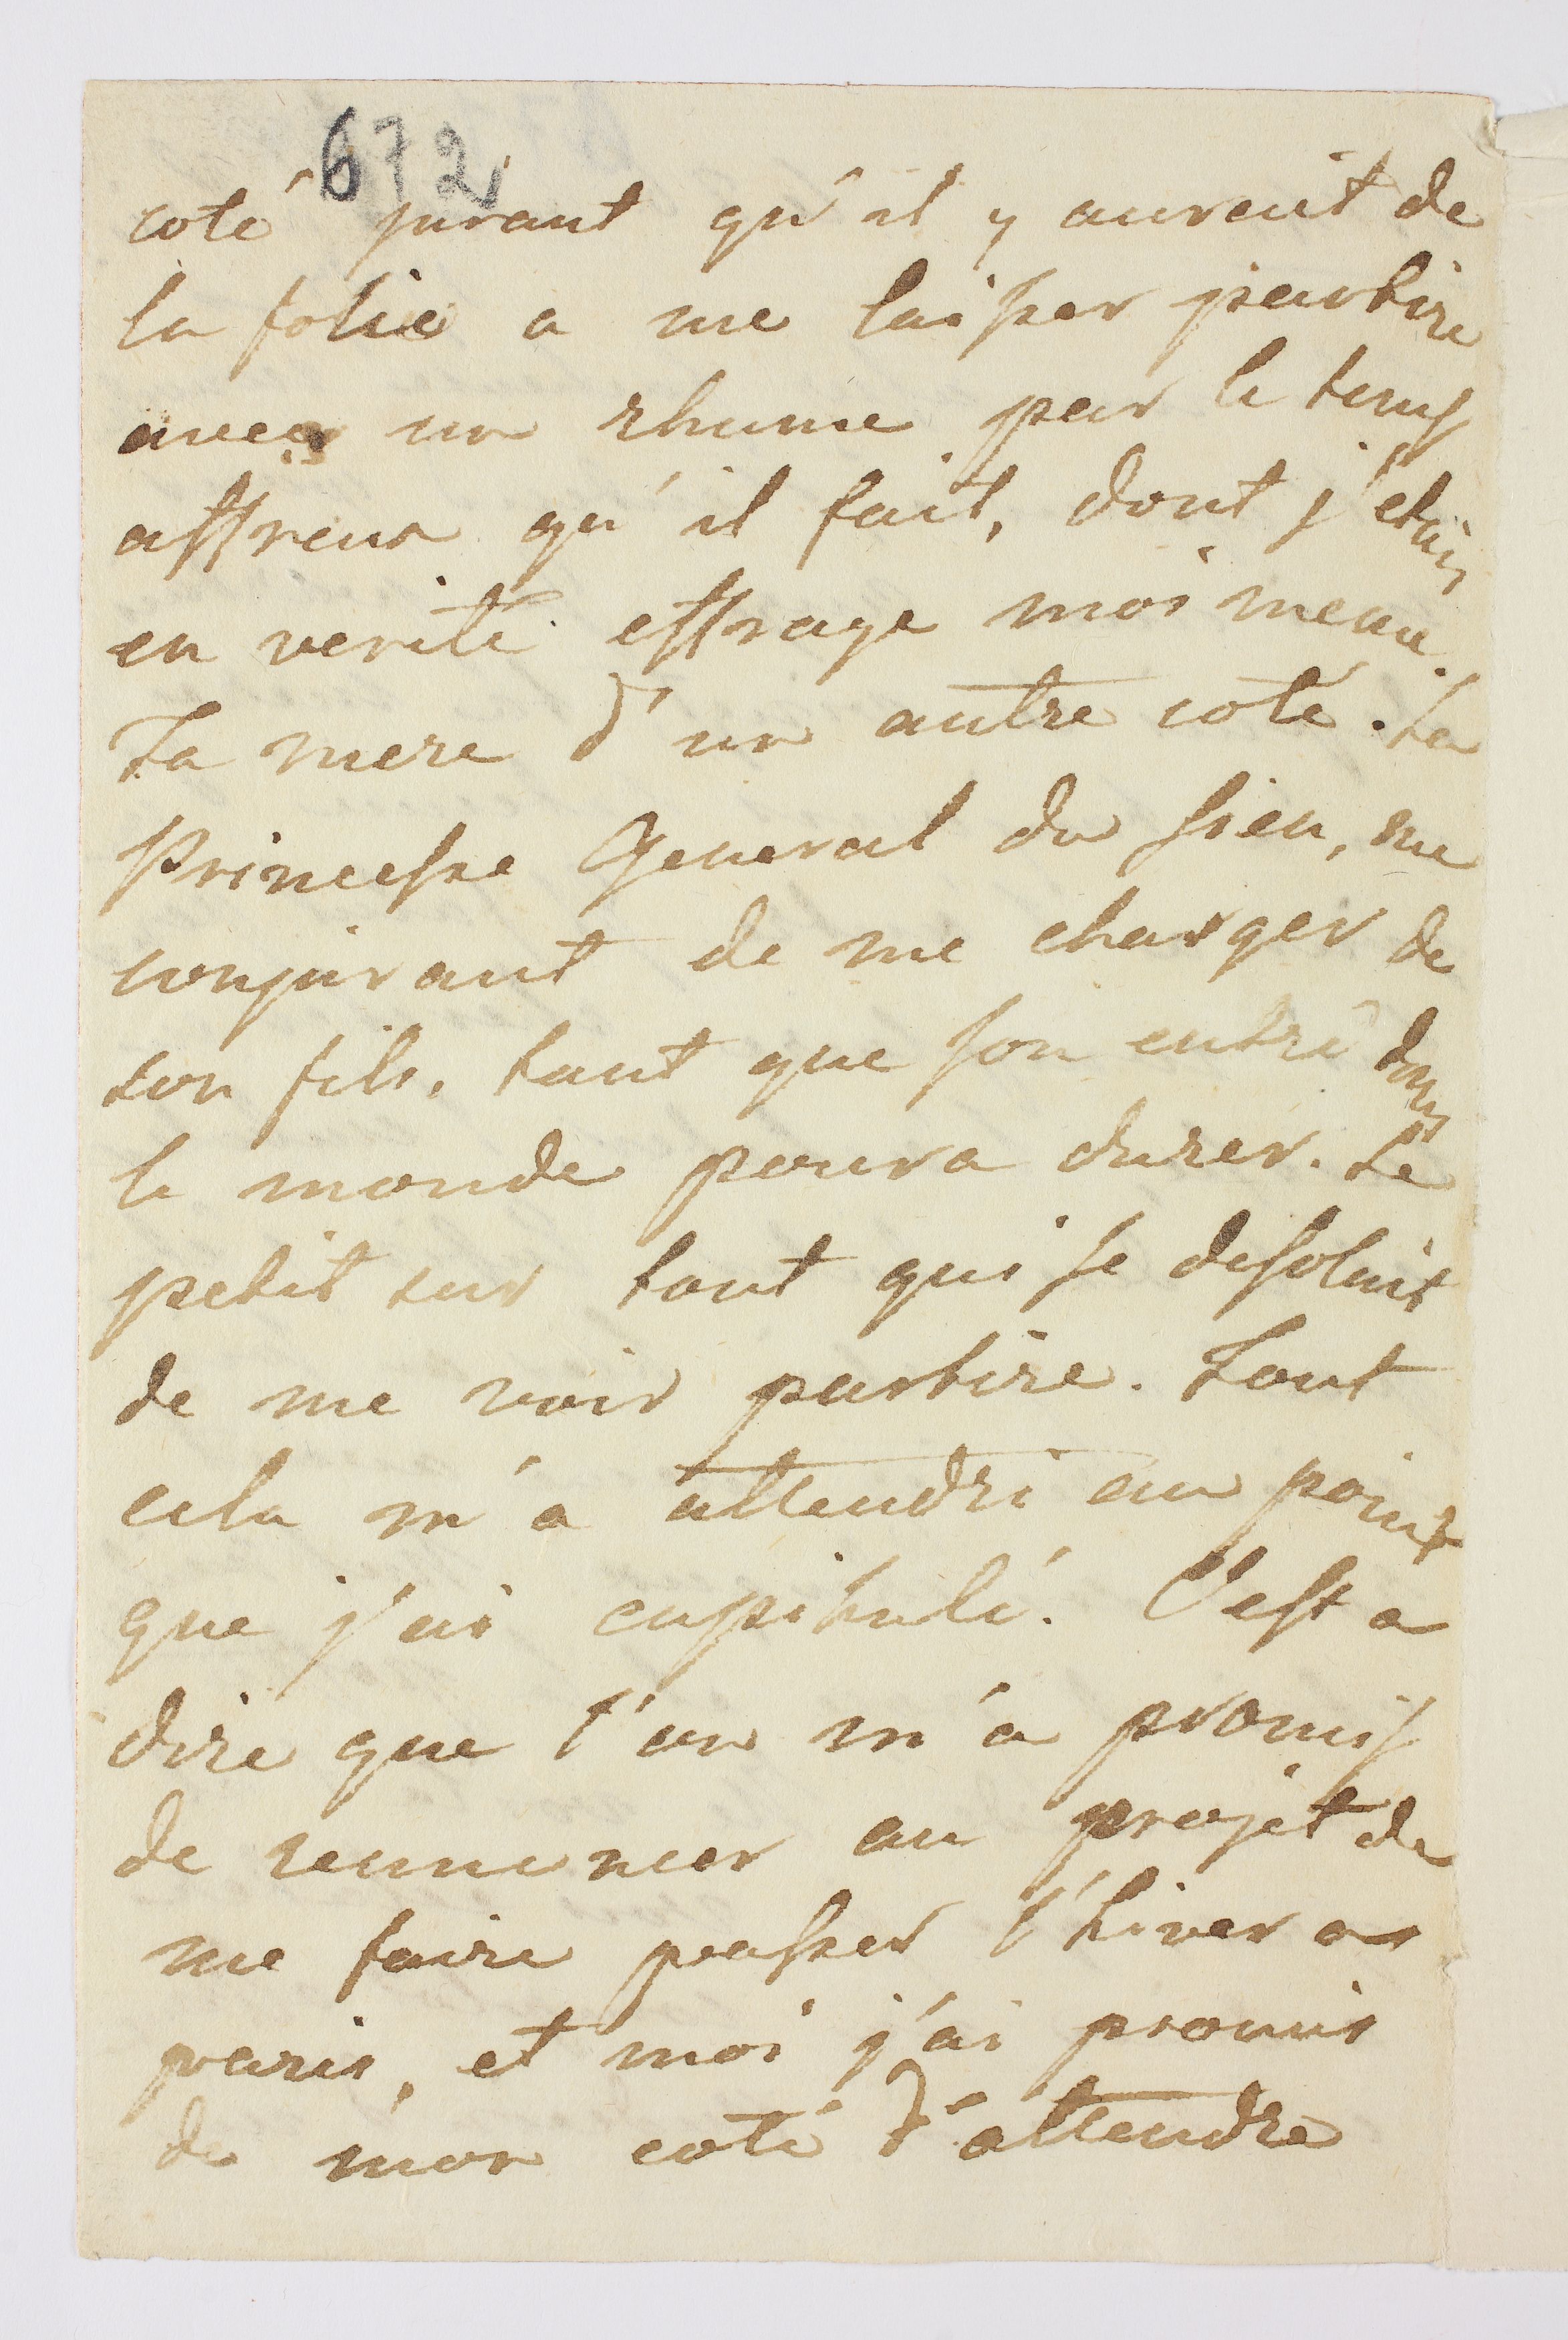 672
coté jurant qu'il y aurait de
la folie a me laisser partire
avec un rhume par le temps
affreux qu'il fait, dont j'etais
en verité effraye moi meme.
Ta mere d'un autre coté. La
Princesse General du sien, me
conjurant de me charger de
son fils, tant que son entré dans
le monde poura durer. Le
petit sur tout qui se desolait
de me voir partire. Tout
cela m'a attendri au point
que j'ai capitulé. C'est a
dire que l'on m'a promis
de renoncer au projet de
me faire passer l'hiver a
paris, et moi j'ai promis
de mon coté d'attendre